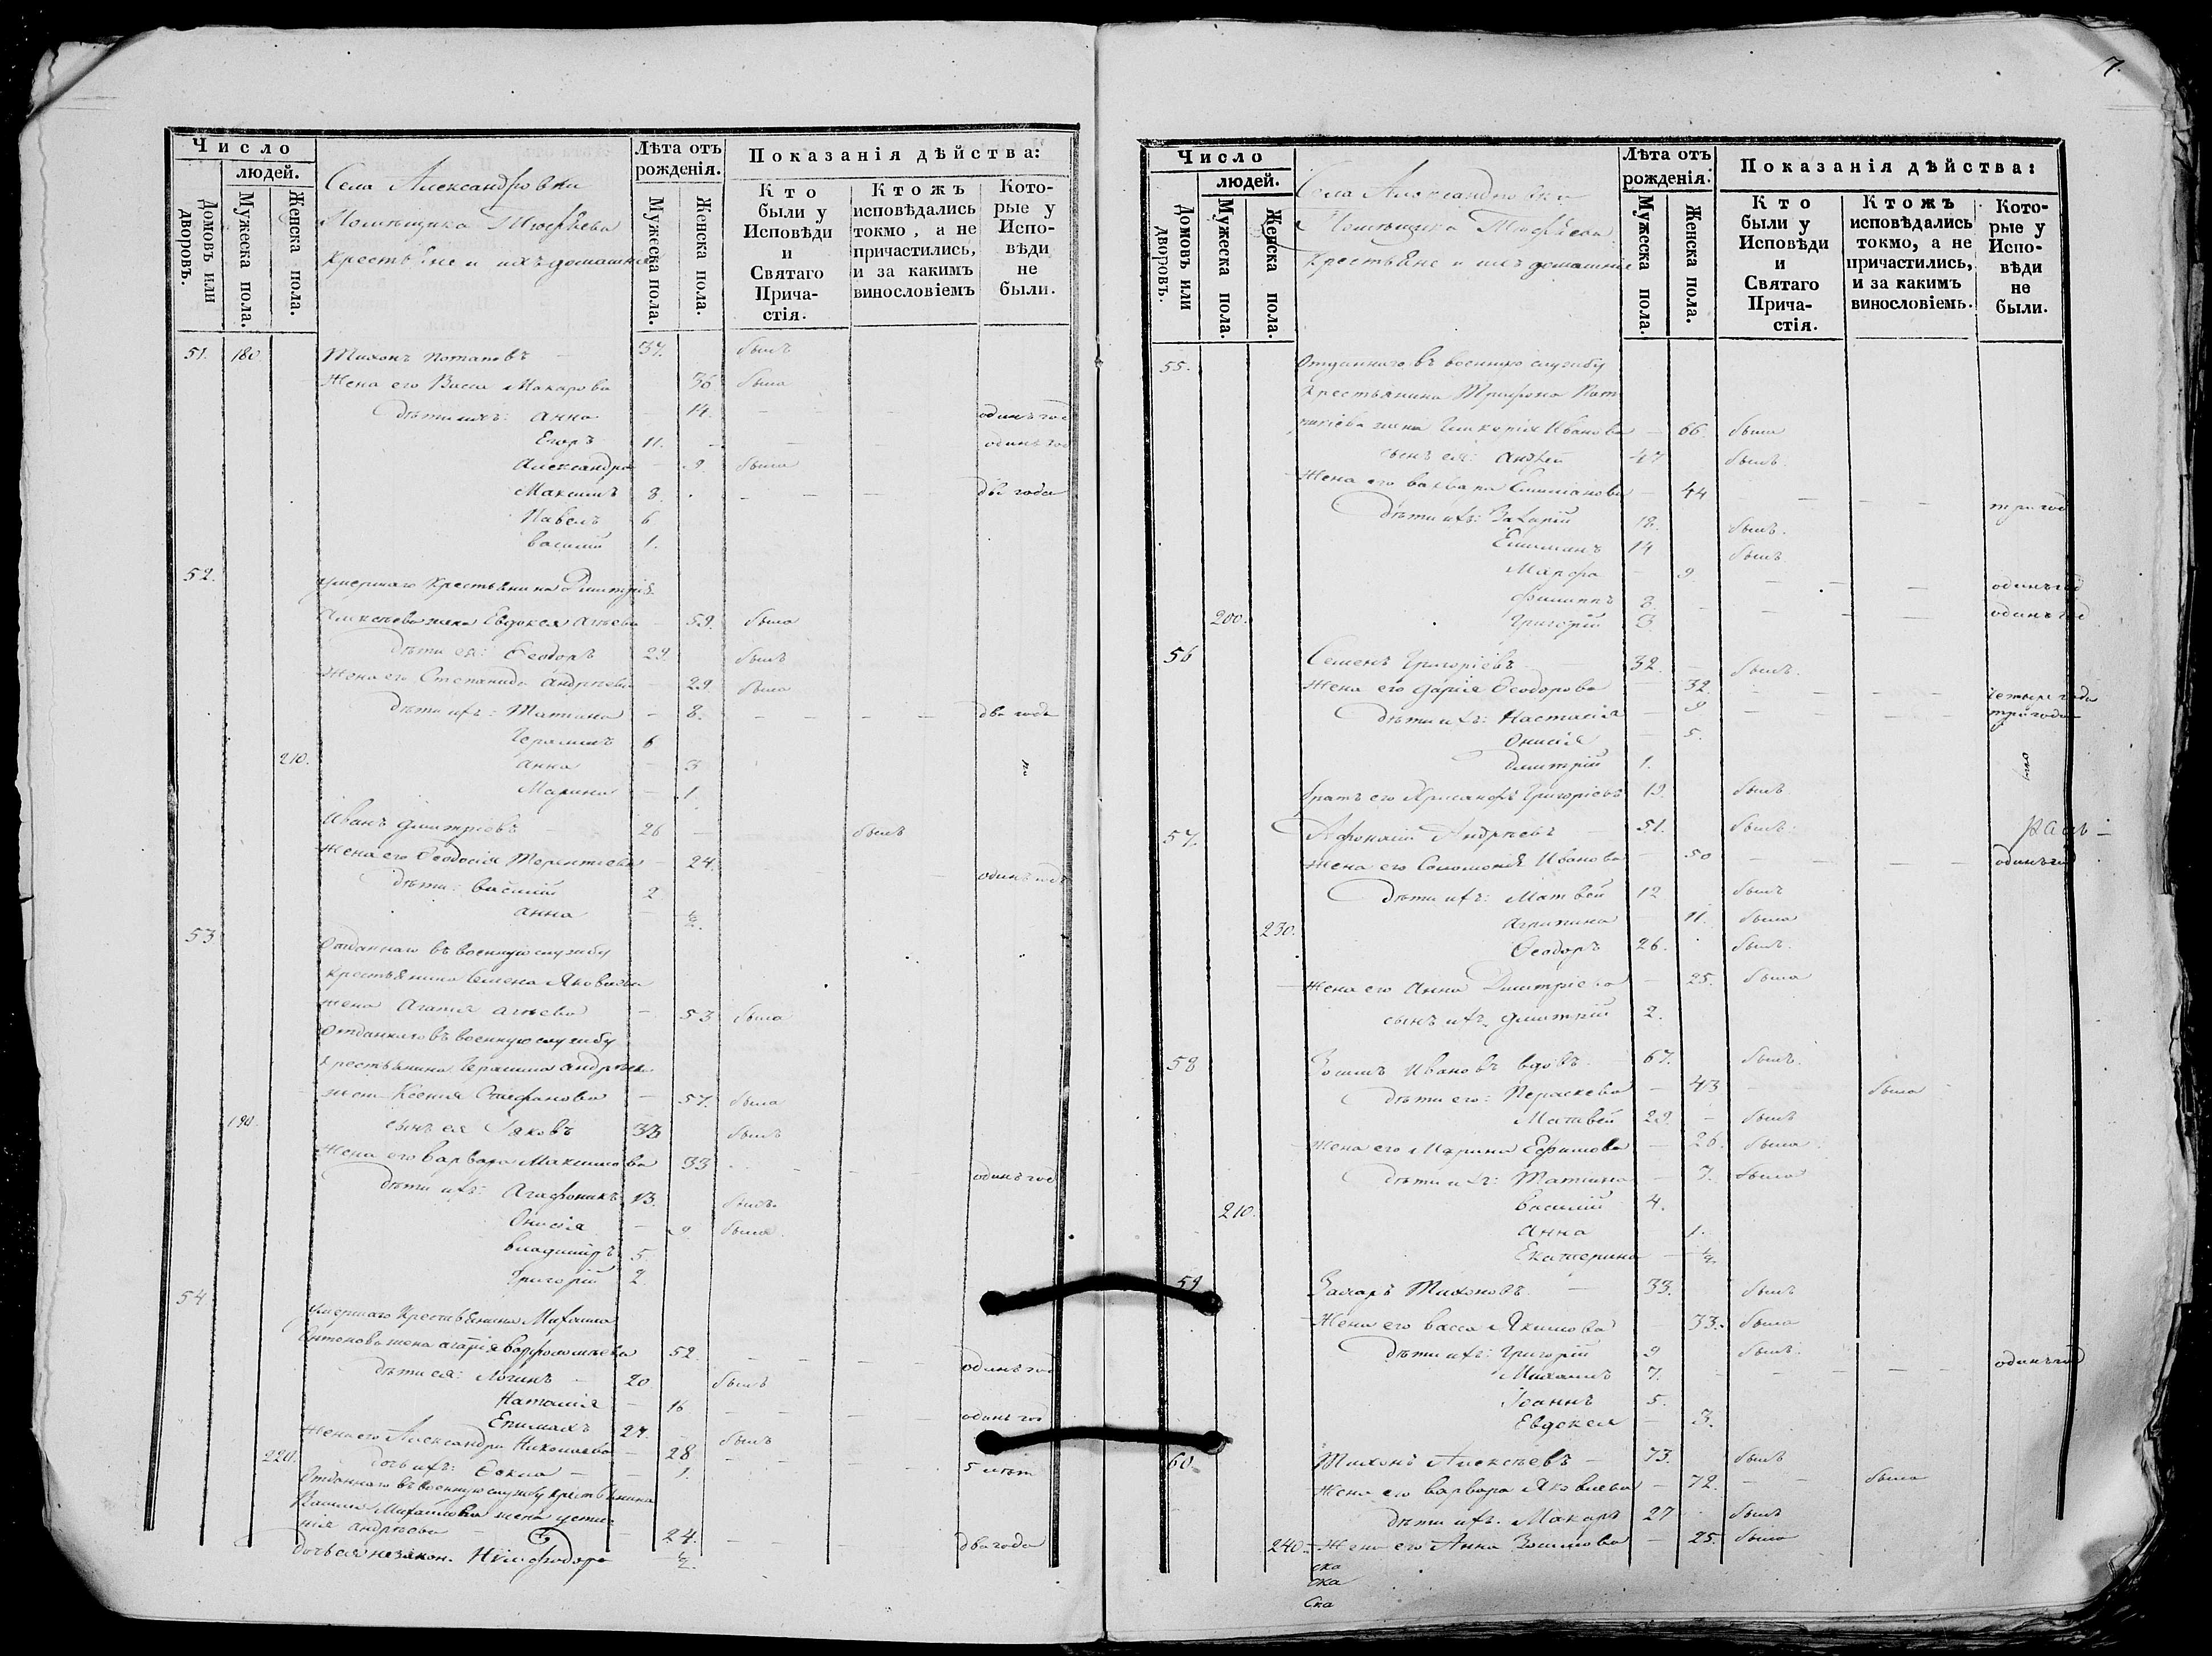 Число
людей.
Домовъ или дворовъ.
Мужеска пола.
Женска пола.
Села Александровки
Помѣщика Тюфѣева
крестьяне и ихъ домашніе
Лѣта отъ рожденія.
Мужеска пола.
Женска пола.
Показанія дѣйства:
Кто были у Исповѣди и Святаго Прича-стія.
Ктожъ исповѣдались токмо, а не причастились, и за какимъ винословіемъ
Кото-рые у Испо-вѣди не были.
51. 180. Тихонъ Потаповъ 37. былъ
Жена его Васса Макарова 36 была
дѣти ихъ: Анна 14. одинъ год
Егоръ 11. одинъ го
Александра 9. была
Максимъ 8. два года
Павелъ 6
Василій 1.
52. умершаго крестьянина Димитрія
Алексѣева жена Евдокея Агѣева 59. была
дѣти ея: Феодоръ 29. былъ
Жена его Степанида Андрѣева 29. была
дѣти ихъ: Татиана 8. два года
Герасимъ 6
210. Анна 3
Марина 1.
Иванъ Дмитріевъ 26 былъ
Жена его Феодосія Терентиева 24. одинъ годъ
дѣти: Василій 2
Анна ½.
53 Отданнаго въ военную службу
крестьянина Семена Яковлева
жена Агапія Агѣева 53 была
Отданнаго въ военную службу
крестьянина Герасима Андрѣева
жена Ксенія Стефанова 57. была
190. сынъ ея Іаковъ 33 былъ
Жена его Варвара Максимова 33 одинъ год
дѣти ихъ: Агафоникъ 13. былъ.
Онисія 9 была.
Владиміръ 5.
Григорій 2.
54 умершаго крестьянина Михаила
Антонова жена Агапія Варфоломѣева 52. одинъ год
дѣти ея: Логинъ 20 былъ
Наталія 16 одинъ год
Епимахъ 27. былъ
Жена его Александра Николаева 28 5 лѣт
220. дочь ихъ: Фокла 1.
Отданнаго въ военную службу крестьянина
Михайлова жена Усти-
нія Андрѣева 24. два года
дочь ея незакон. Нимфодора ½.
7.
Число
людей.
Домовъ или дворовъ.
Мужеска пола.
Женска пола.
Села Александровки
Помѣщика Тюфѣева
Крестьяне и ихъ домашніе
Лѣта отъ рожденія.
Мужеска пола.
Женска пола.
Показанія дѣйства:
Кто были у Исповѣди и Святаго Прича-стія.
Ктожъ исповѣдались токмо, а не причастились, и за какимъ винословіемъ.
Кото-рые у Испо-вѣди не были.
55. Отданнаго въ военную службу
Крестьянина Трифона
жена Гликерія Иванова 66. была
сынъ ея: Андрей 47 былъ.
Жена его Варвара 44 три год
дѣти ихъ: Захарій 18. былъ.
14 былъ
Марфа 9. одинъ год
Филиппъ 8. одинъ год
200. Григорій 3
56 Семенъ Григоріевъ 32. былъ.
Жена его Дарія Феодорова 32. четыре года
дѣти ихъ: Настасія 9 три года
Онисія 5.
Дмитрій 1.
братъ его Хрисанфъ Григоріевъ 19. былъ.
57. Афонасій Андрѣевъ 51. былъ.
Жена его Соломонія Иванова 50 одинъ год
дѣти ихъ: Матвей 12 былъ
Агрипина 11. была
230. Феодоръ 26. былъ.
Жена его Анна Димитріева 25. была
сынъ ихъ Дмитрій 2.
58 Зосимъ Ивановъ вдовъ. 67. былъ.
дѣти его: Параскева 43 была
Матвей 29. былъ
Жена его Марина Ефимова 26. была
дѣти ихъ: Татиана 7. была
210. Василій 4.
Анна 1.
Екатерина ½.
59 Захаръ Тихоновъ 33. былъ
Жена его Васса Якимова 33. была
дѣти ихъ: Григорій 9 былъ.
Михаилъ 7. одинъ год
Іоаннъ 5.
Евдокея 3.
60. Тихонъ Алексѣевъ 73. былъ
Жена его Варвара Яковлева 72. была
дѣти ихъ. Макаръ 27 былъ
240. Жена его Анна Зосимова 25. была
ска
ска
Ска